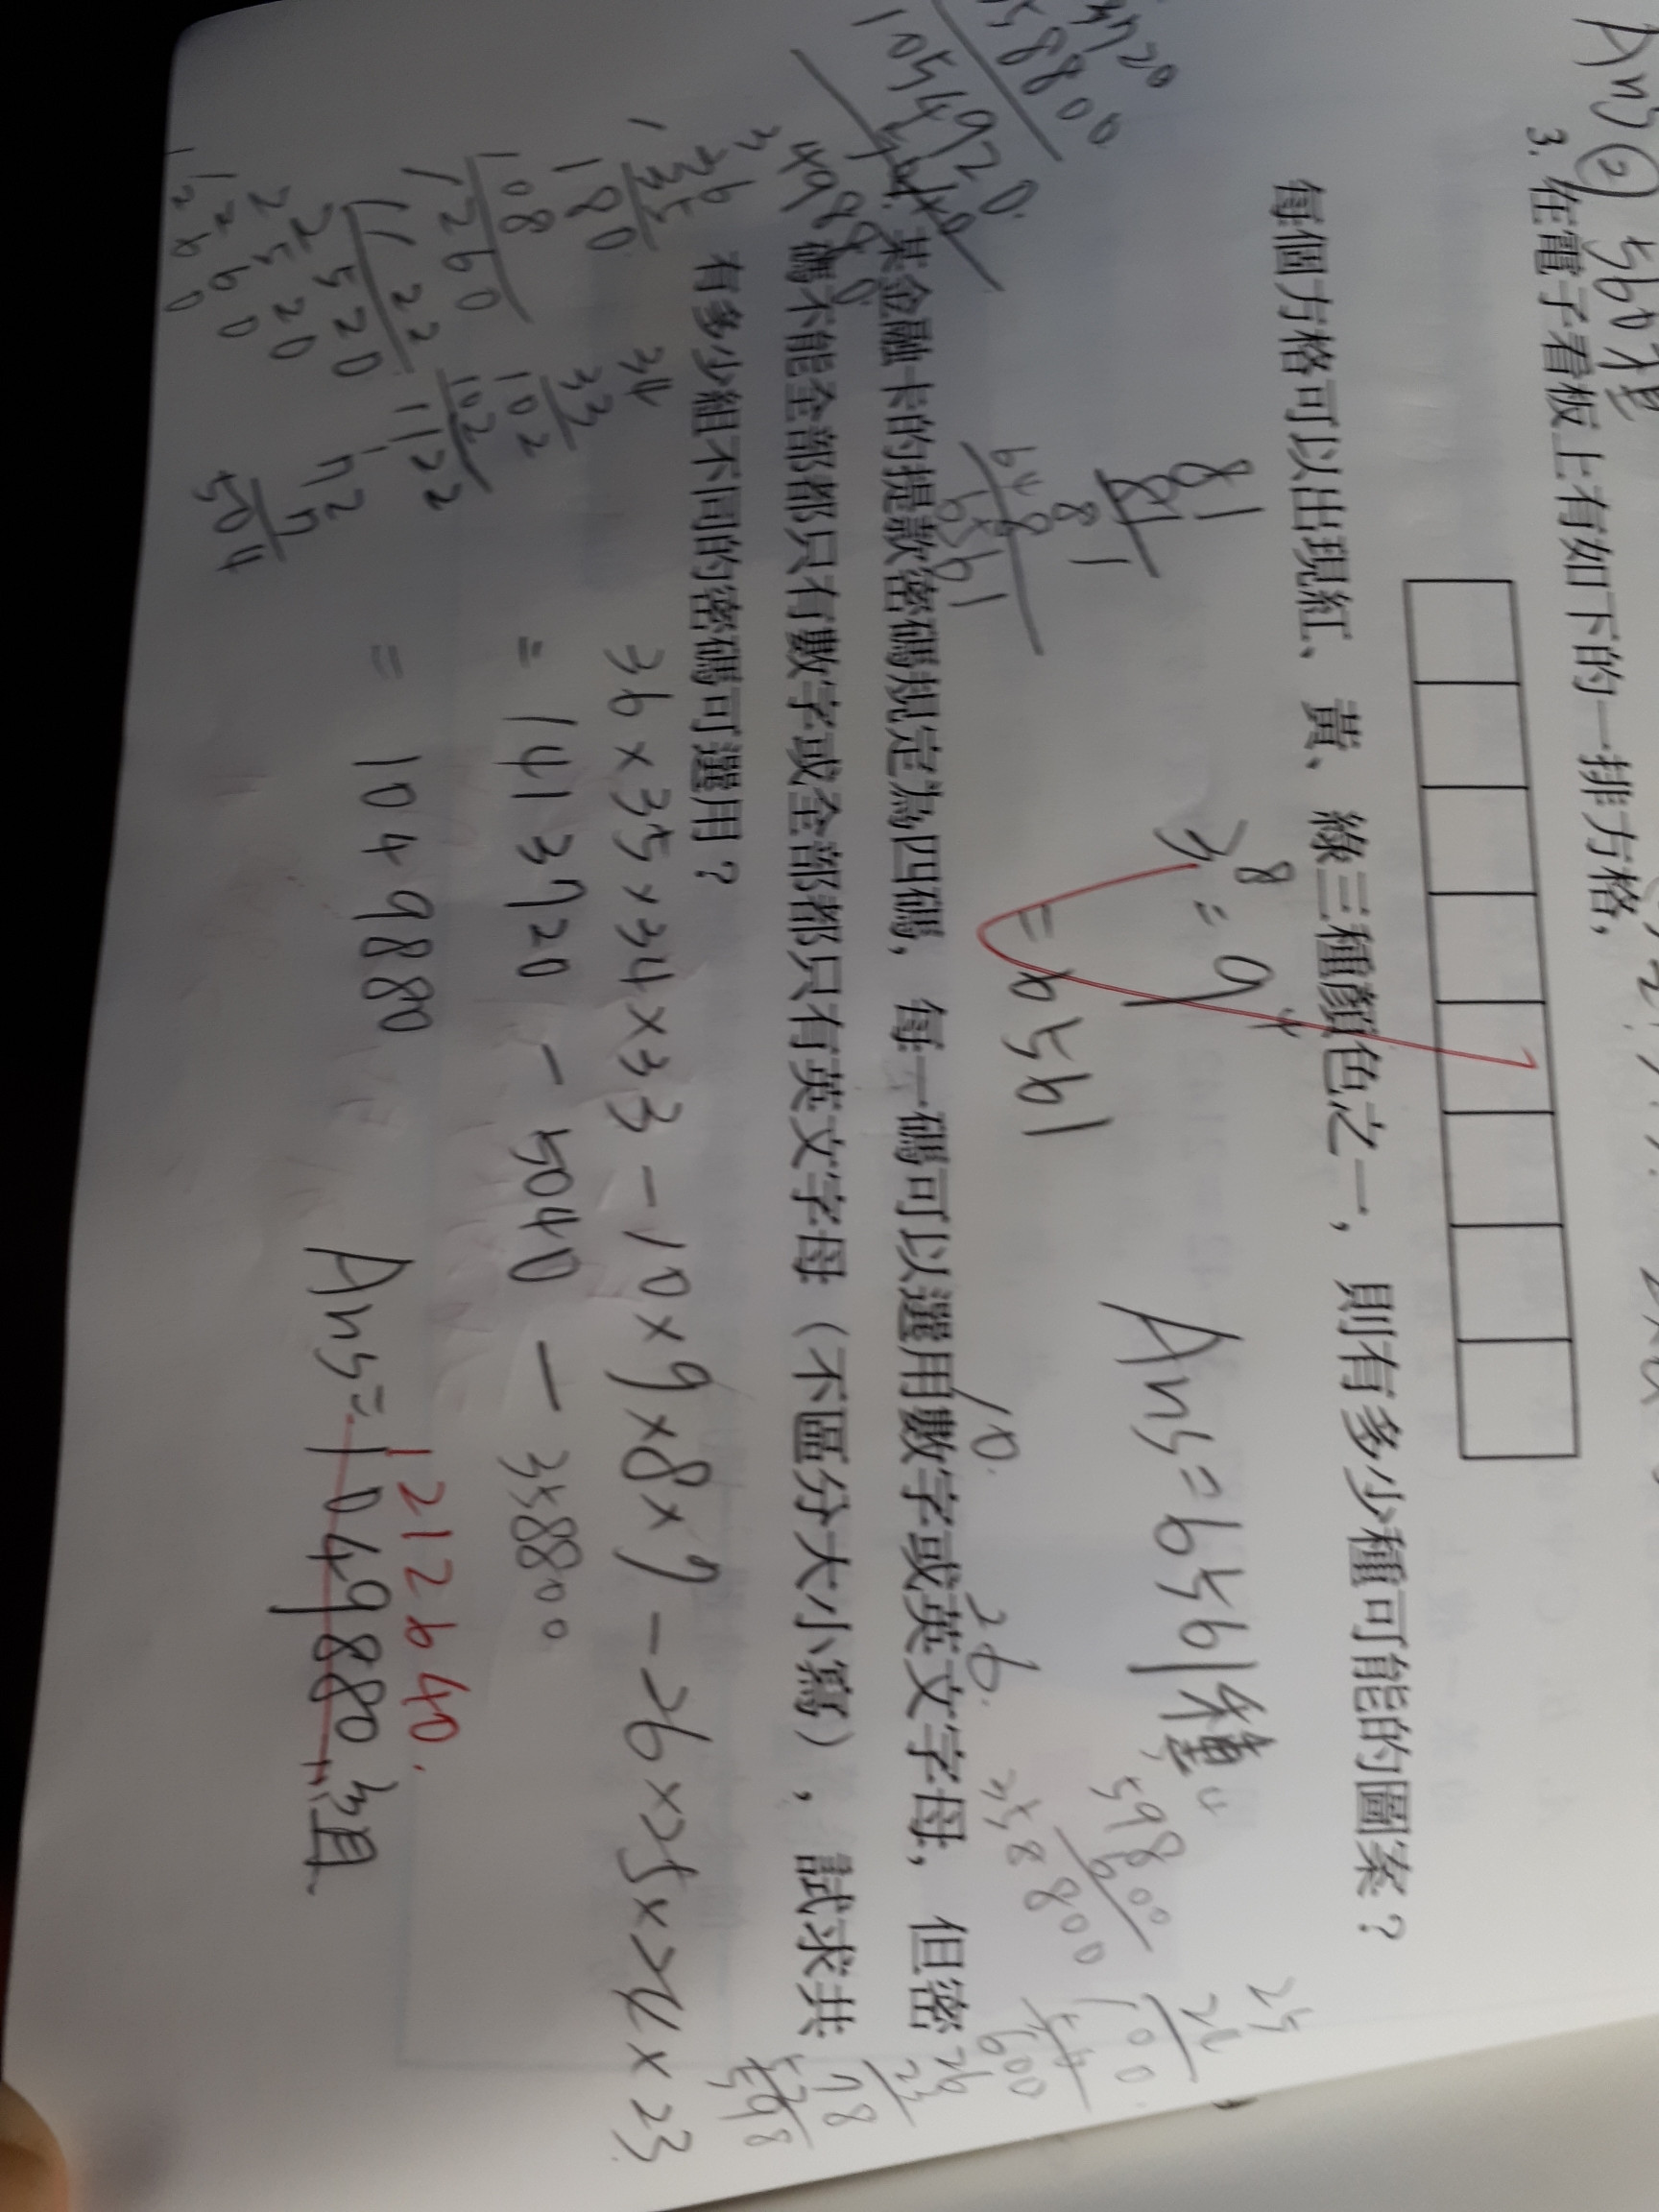 Ans ② 560種
3. 在電子看板上有如下的一排方格，
每個方格可以出現紅、黃、綠三種顏色之一，則有多少種可能的圖案？
3⁸ = 9⁴
= 6561
Ans = 6561種
81
81
81
648
6561
10
26
4. 某金融卡的提款密碼規定為四碼，每一碼可以選用數字或英文字母，但密
碼不能全部都只有數字或全部都只有英文字母（不區分大小寫），試求共
有多少組不同的密碼可選用？
36×35×34×33-10×9×8×7-26×25×24×23
= 1413720 - 5040 - 358800
= 1049880
1212640.
Ans = 1049880組
358800
1054920
36
35
180
108
1260
34
33
102
102
1122
1122
2520
2520
1260
72
7
504
25
24
100
600
26
23
78
598
598
358800